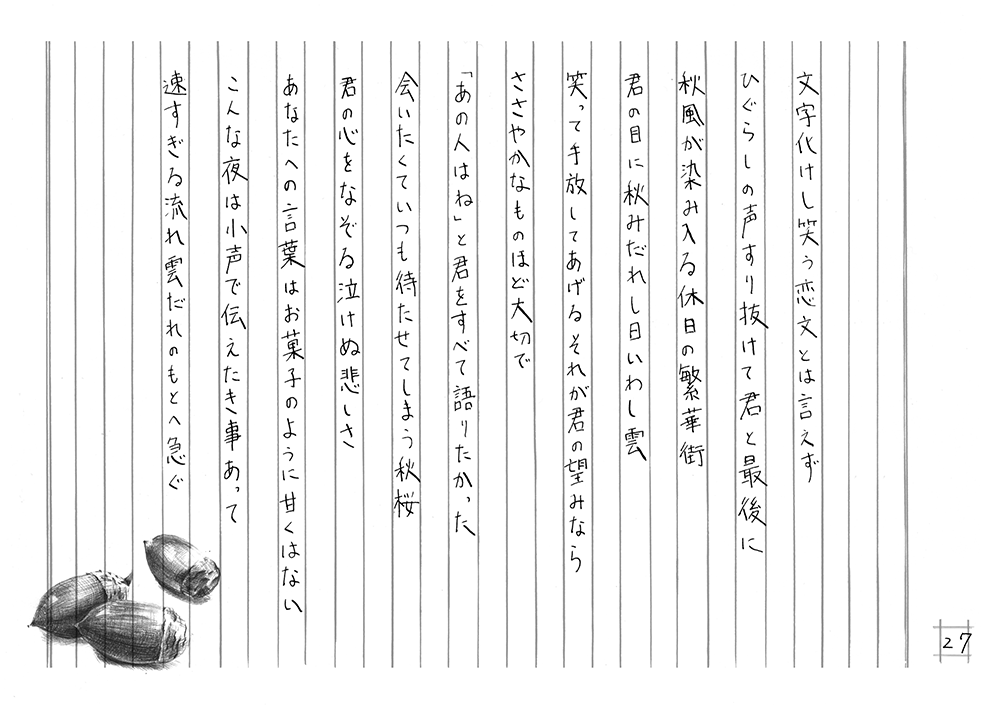 文字化けし笑う恋文とは言えず
ひぐらしの声すり抜けて君と最後に
秋風が染み入る休日の繁華街
君の目に秋みだれし日いわし雲
笑って手放してあげるそれが君の望みなら
ささやかなものほど大切で
「あの人はね」と君をすべて語りたかった
会いたくていつも待たせてしまう秋桜
君の心をなぞる泣けぬ悲しさ
あなたへの言葉はお菓子のように甘くはない
こんな夜は小声で伝えたき事あって
速すぎる流れ雲だれのもとへ急ぐ
27